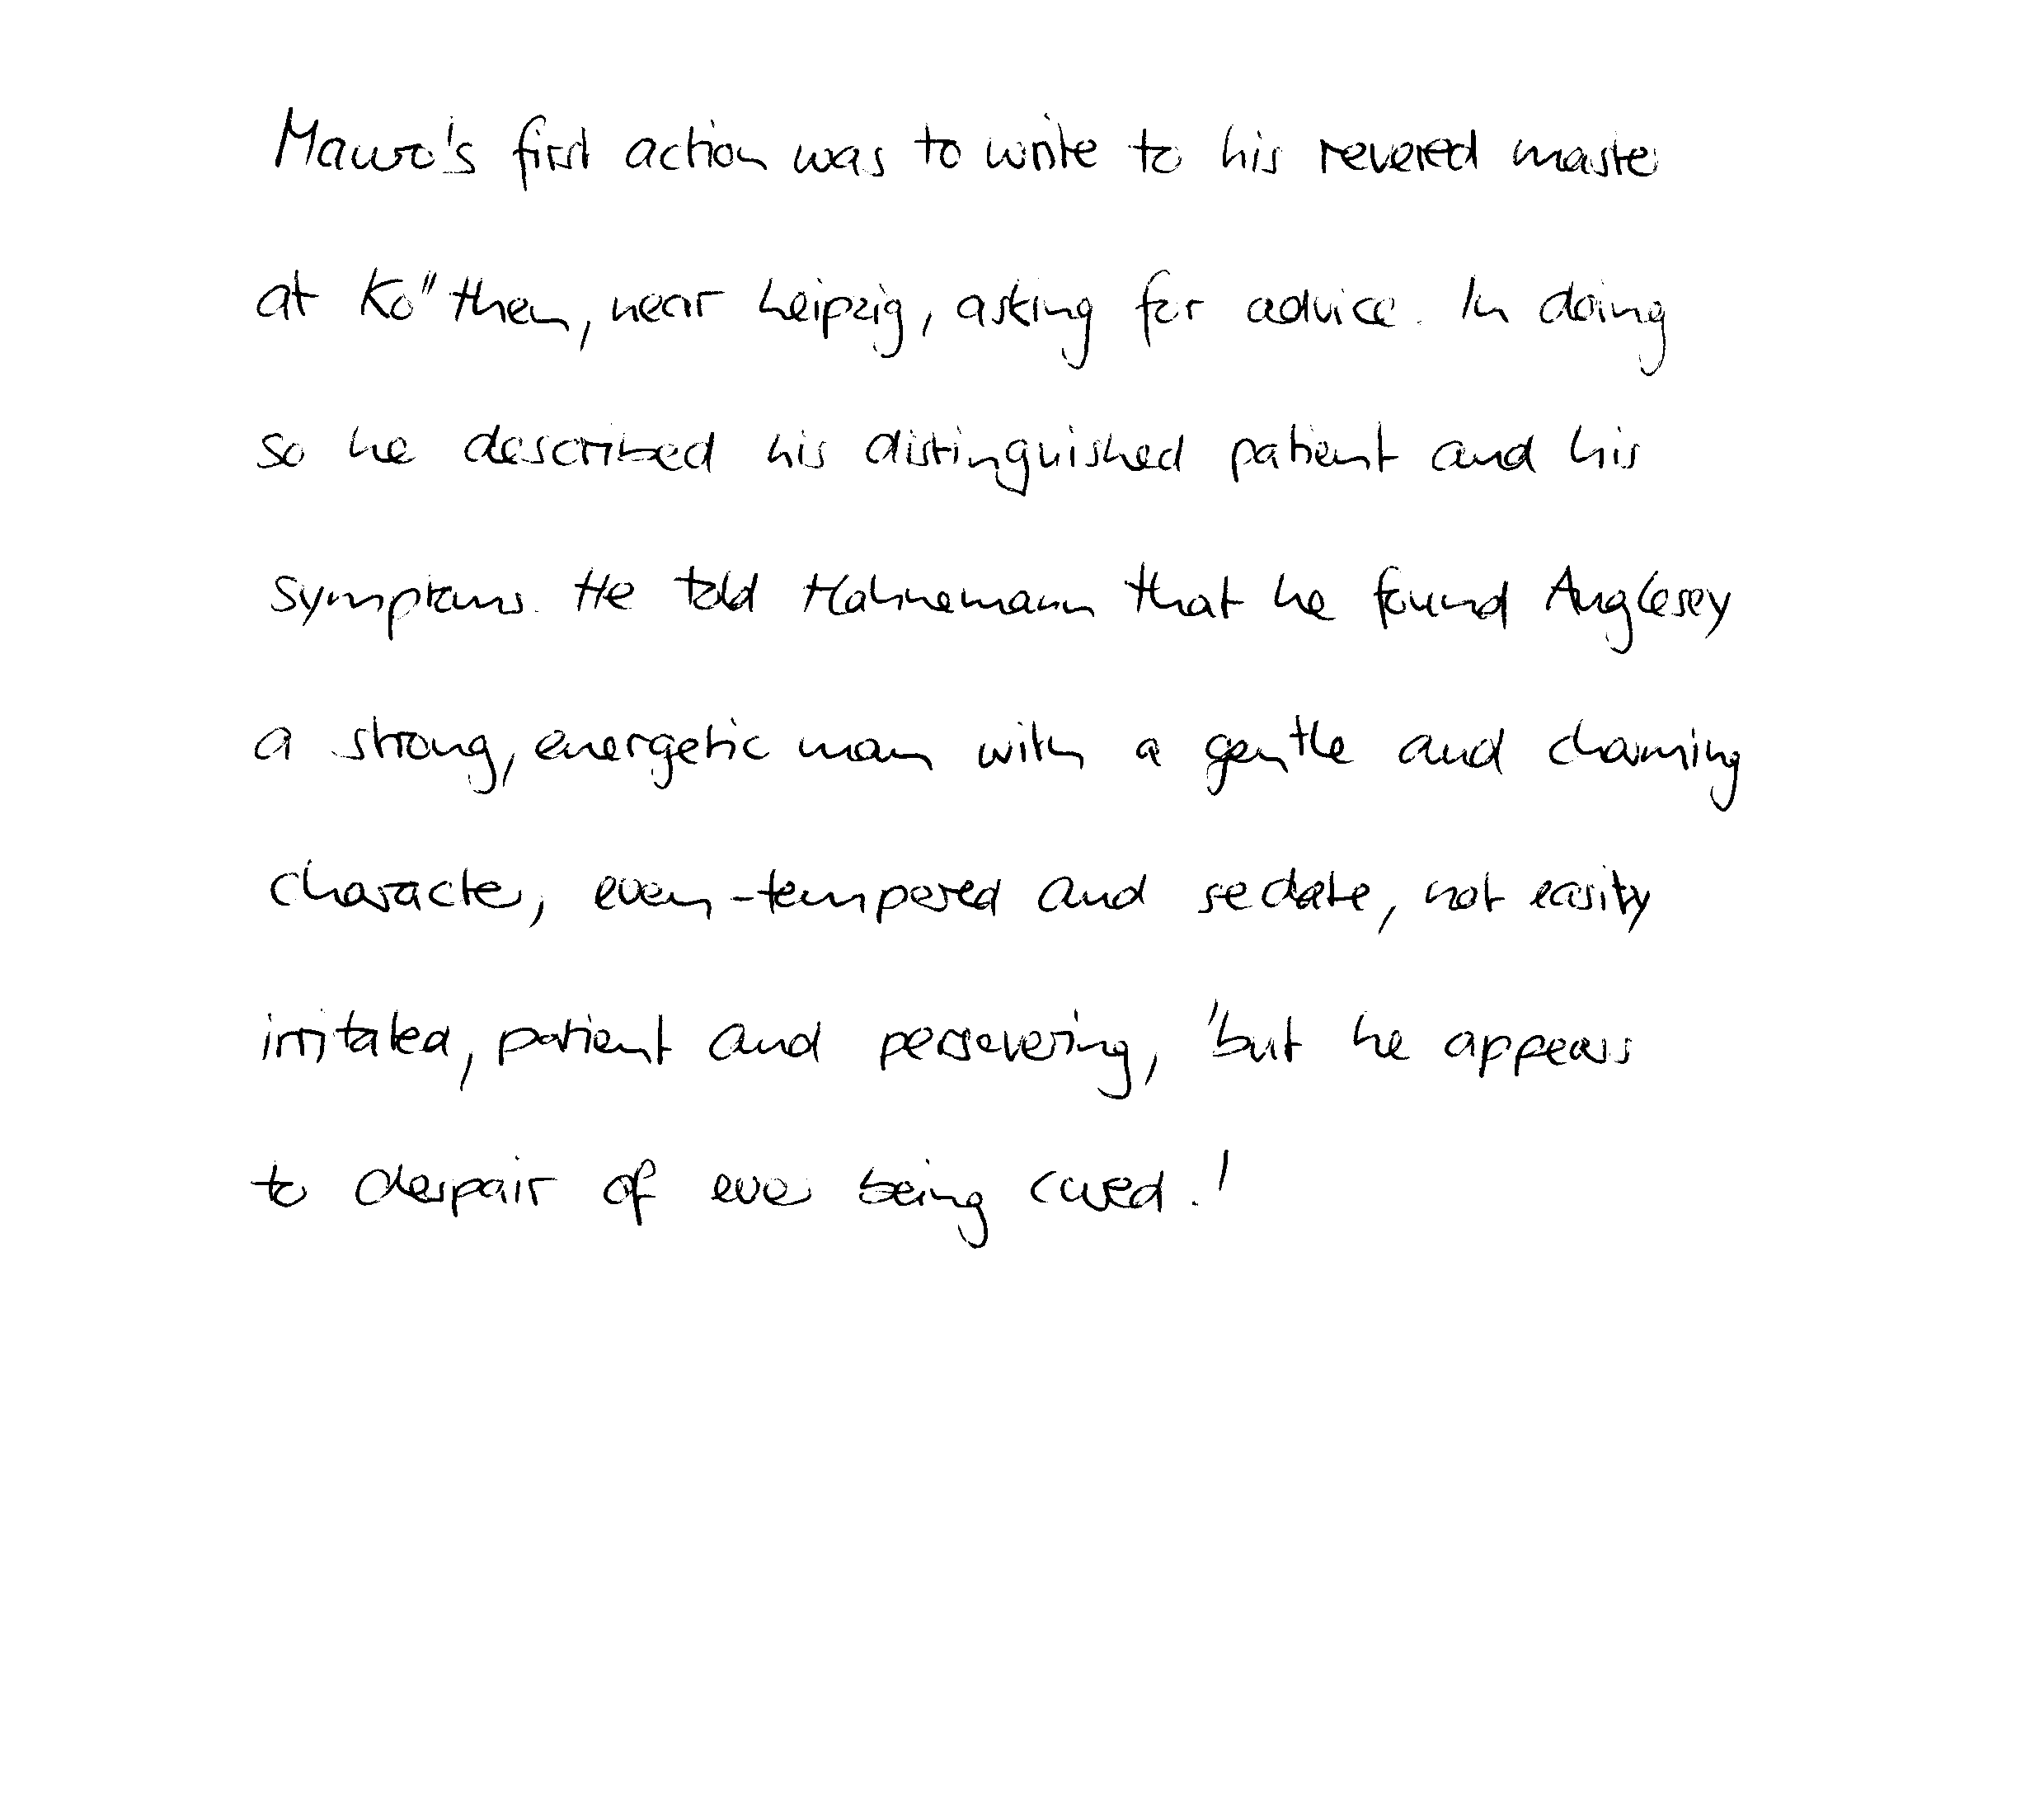 Mauro's first action was to write to his revered master
at Ko"then, near Leipzig, asking for advice. In doing
so he described his distinguished patient and his
symptoms. He told Hahnemann that he found Anglesey
a strong, energetic man with a gentle and charming
character, even-tempered and sedate, not easily
irritated, patient and persevering, 'but he appears
to despair of ever being cured.'